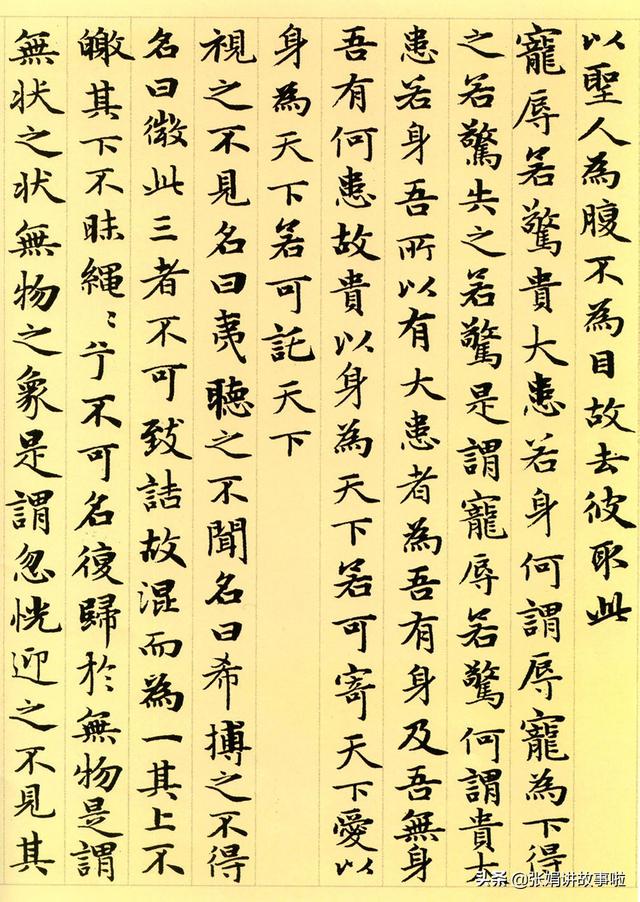 以聖人為腹不為目故去彼取此
寵辱若驚貴大患若身何謂辱寵為下得
之若驚失之若驚是謂寵辱若驚何謂貴大
患若身吾所以有大患者為吾有身及吾無身
吾有何患故貴以身為天下若可寄天下愛以
身為天下若可託天下
視之不見名曰夷聽之不聞名曰希搏之不得
名曰微此三者不可致詰故混而為一其上不
皦其下不昧繩〻兮不可名復歸於無物是謂
無状之状無物之象是謂忽恍迎之不見其
头条 @张娟讲故事啦